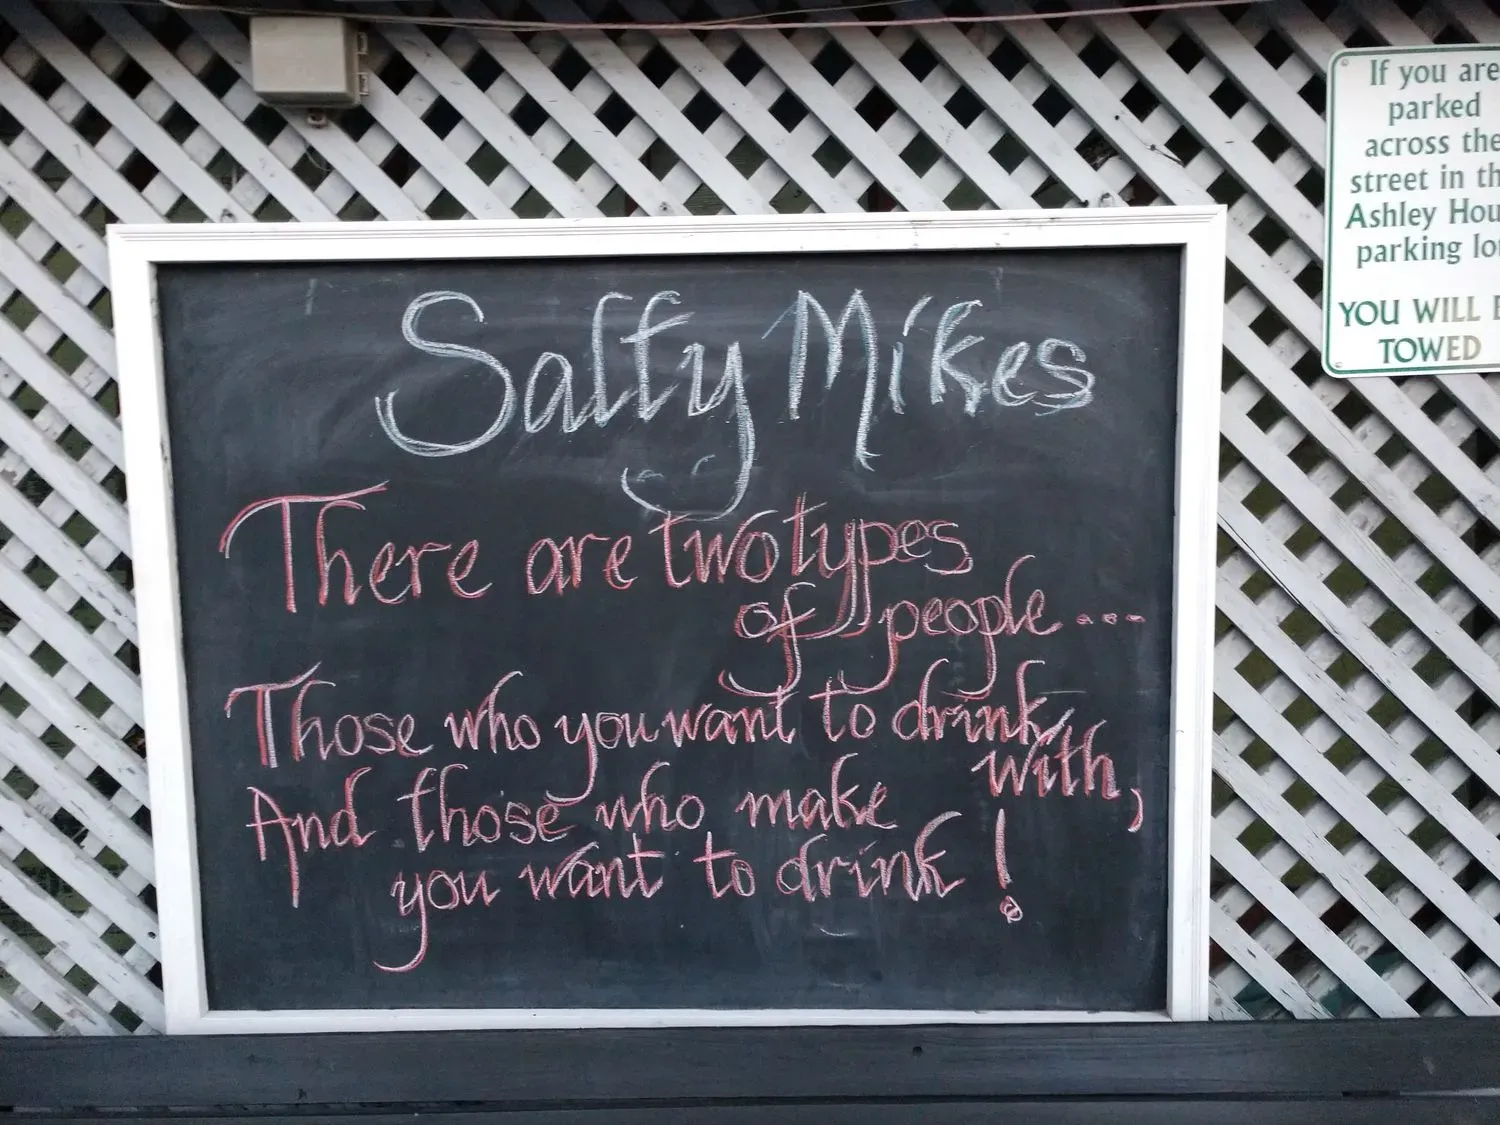 Salty Mikes
There are two types
of people....
Those who you want to drink
with,
And those who make
you want to drink!
If you are
parked
across the
street in th
Ashley Hou
parking lo
YOU WILL B
TOWED